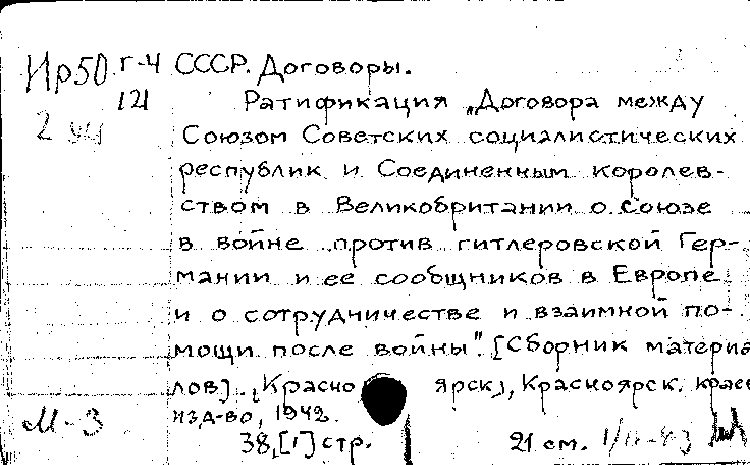 Ир50 г-4 СССР. Договоры.
121 Ратификация „Договора между
2 Союзом Советских социалистических
республик и Соединенным королев-
ством в Великобритании о союзе
в войне против гитлеровской Гер-
мании и ее сообщников в Европе
и о сотрудничестве и взаимной по-
мощи после войны". [Сборник материа
лов]. [Красноярск], Красноярск. краев
изд-во, 1942.
М-3
38,[1] стр. 21 см.